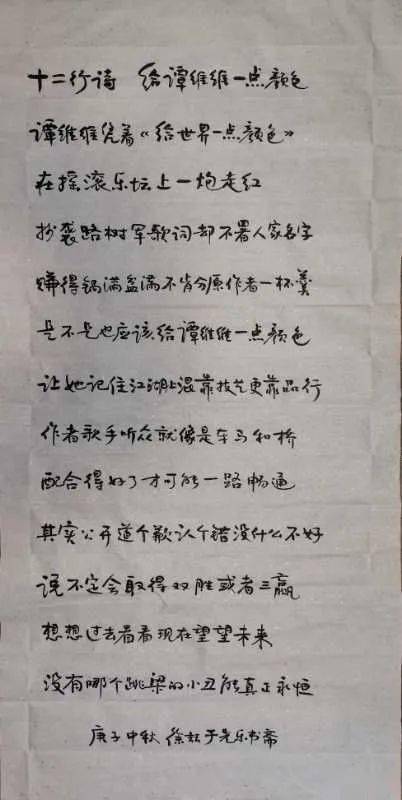 十二行诗　给谭维维一点颜色
谭维维凭着《给世界一点颜色》
在摇滚乐坛上一炮走红
抄袭路树军歌词却不署人家名字
赚得锅满盆满不肯分原作者一杯羹
是不是也应该给谭维维一点颜色
让她记住江湖上混靠技艺更靠品行
作者歌手听众就像是车马和桥
配合得好了才可能一路畅通
其实公开道个歉认个错没什么不好
说不定会取得双胜或者三赢
想想过去看看现在望望未来
没有哪个跳梁的小丑能真正永恒
庚子中秋 徐 于先乐书斋